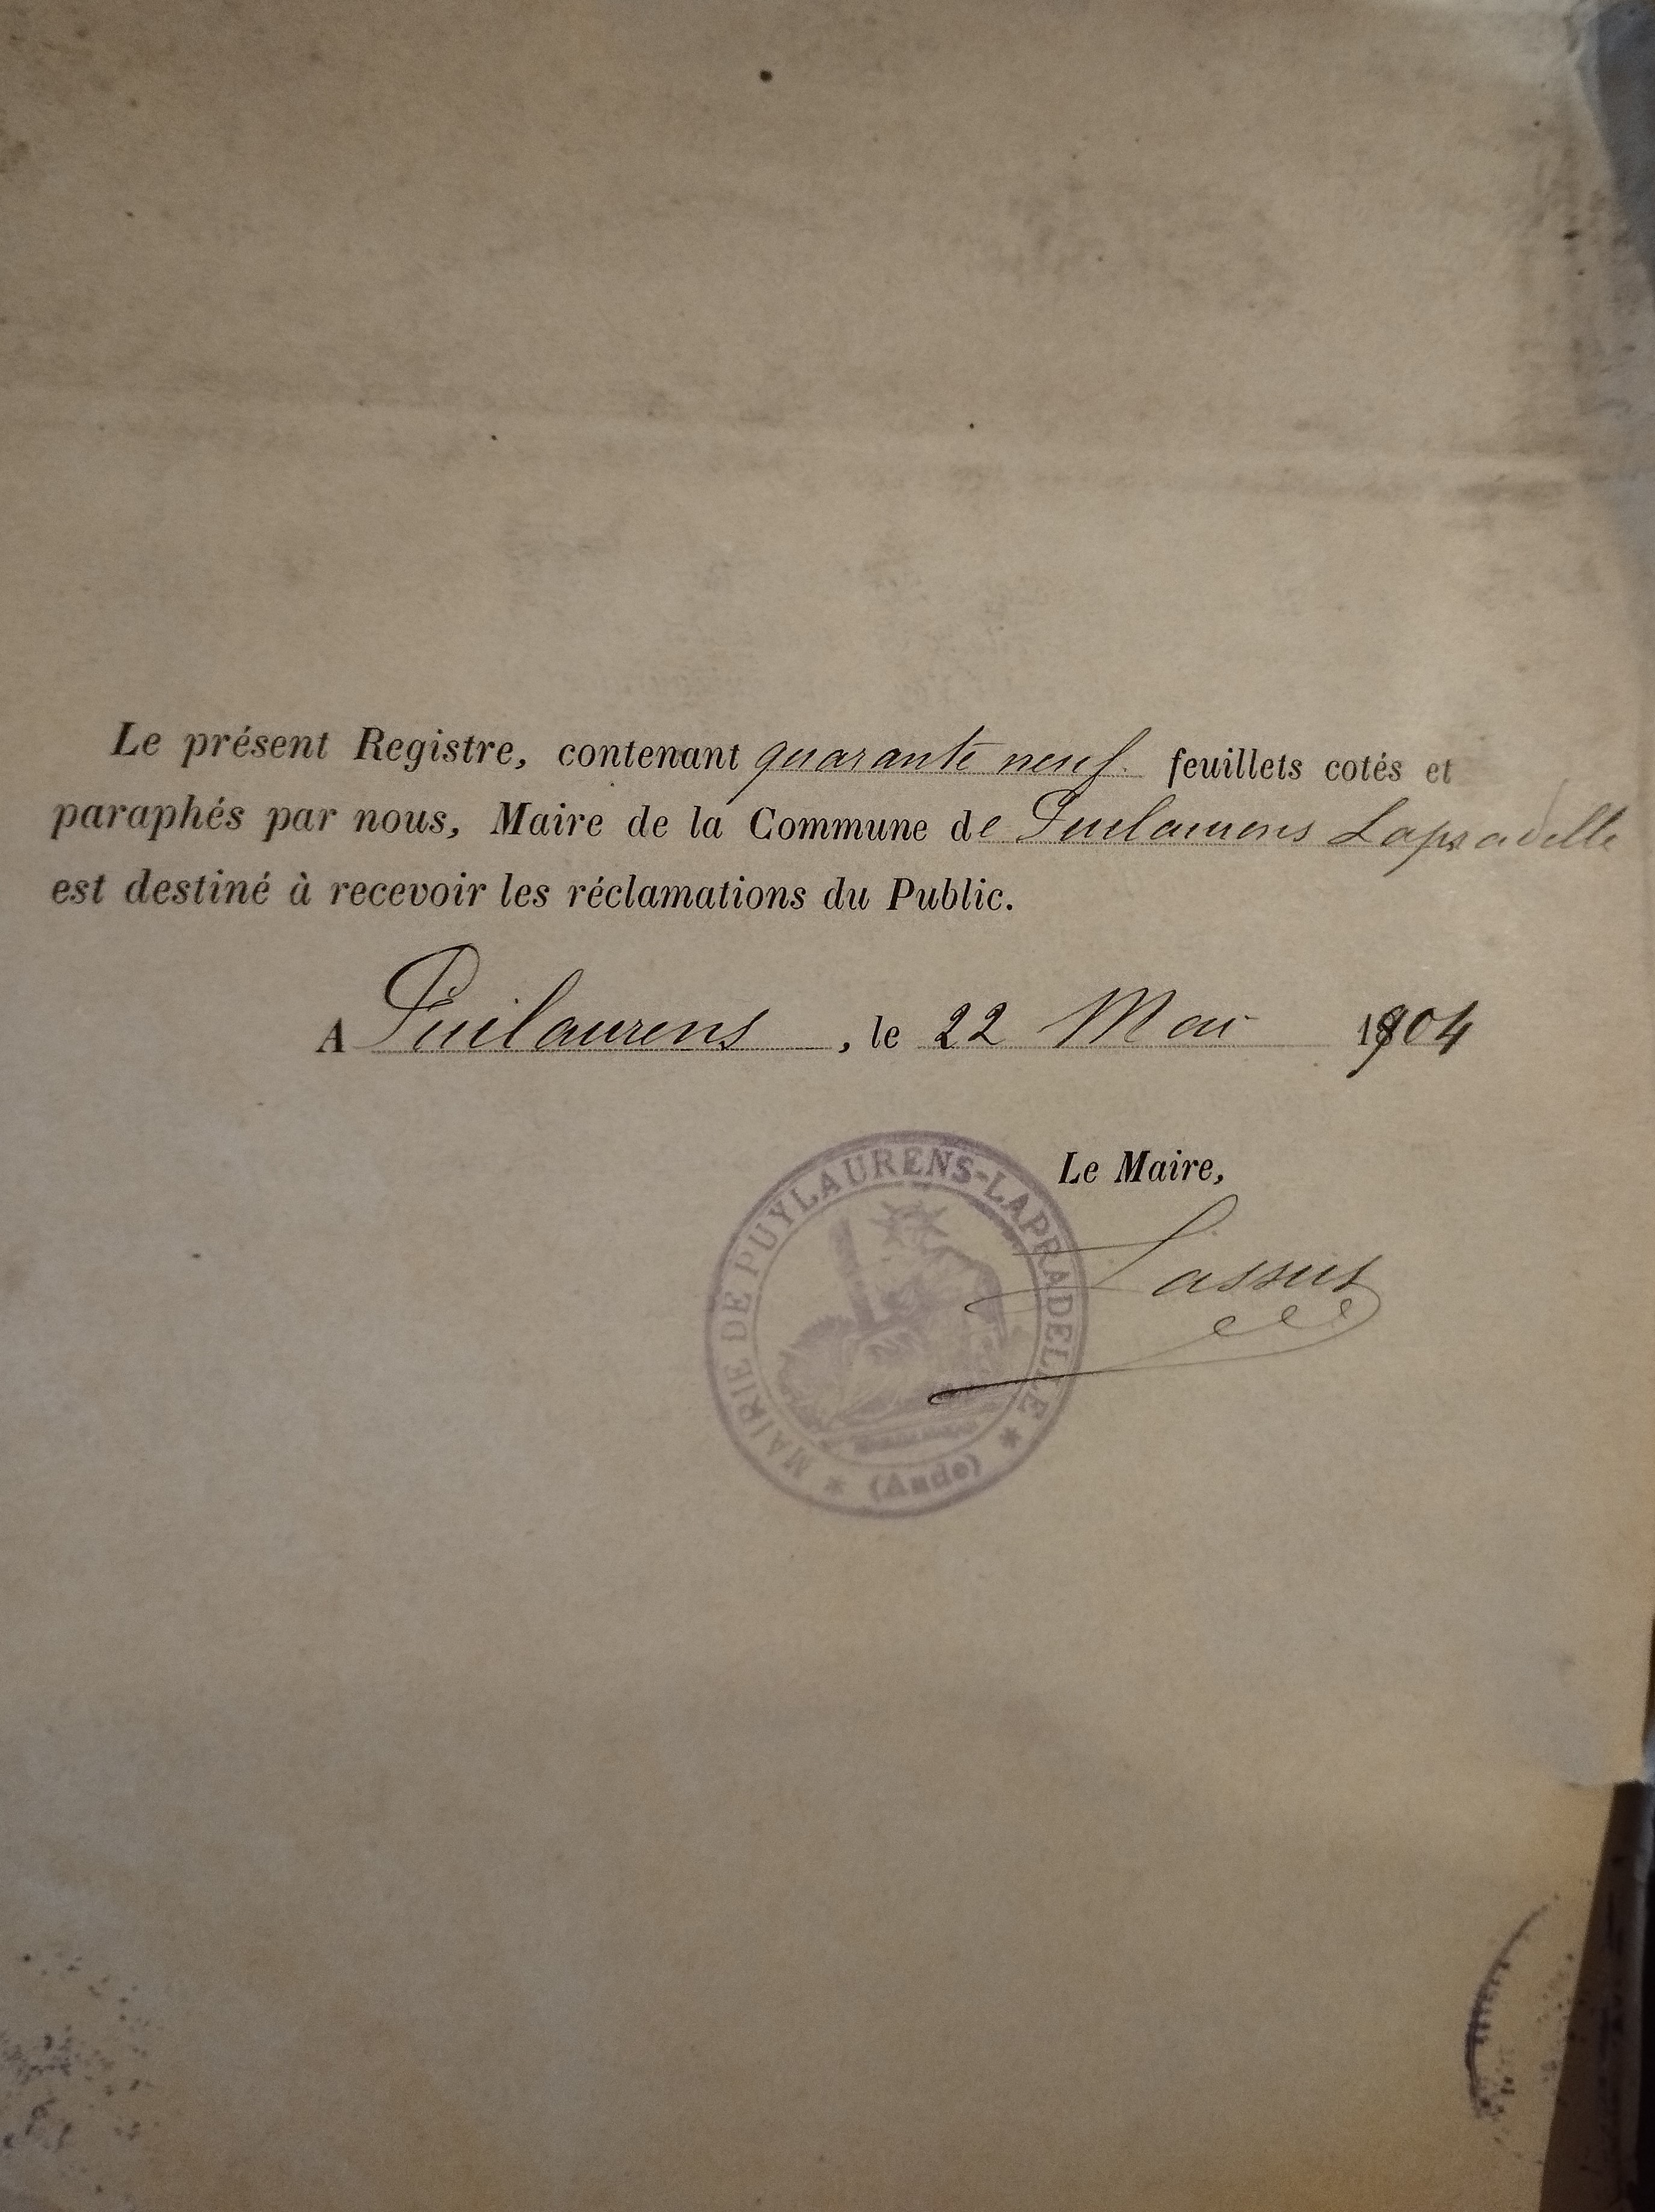 Le présent Registre, contenant quarante neuf feuillets cotés et
paraphés par nous, Maire de la Commune de Puilaurens Lapradelle
est destiné à recevoir les réclamations du Public.
A Puilaurens, le 22 Mai 1904
Le Maire,
Lassus
MAIRIE DE PUYLAURENS-LAPRADELLE
(Aude)